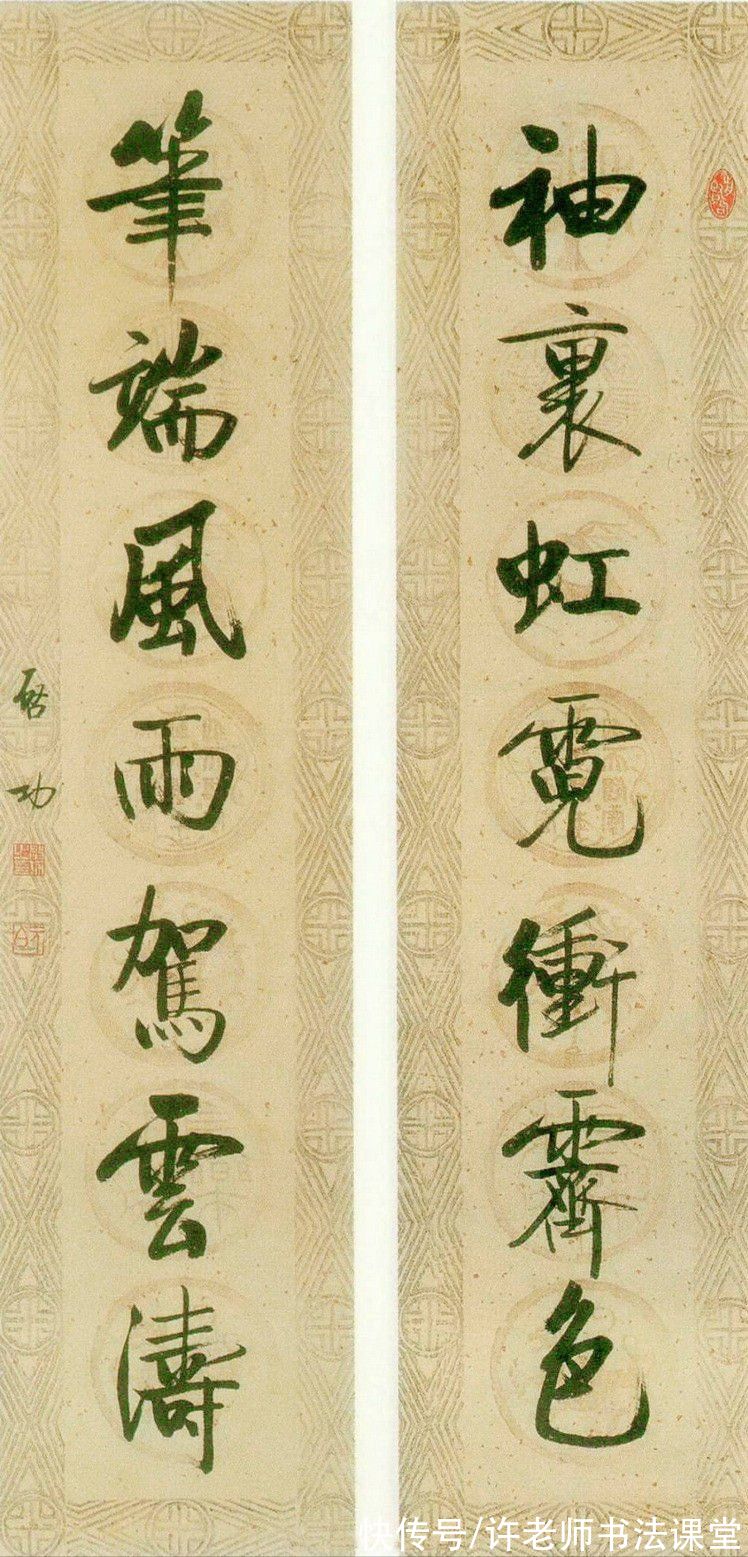 袖裏虹霓衝霽色
筆端風雨駕雲濤
啓功
快传号/许老师书法课堂